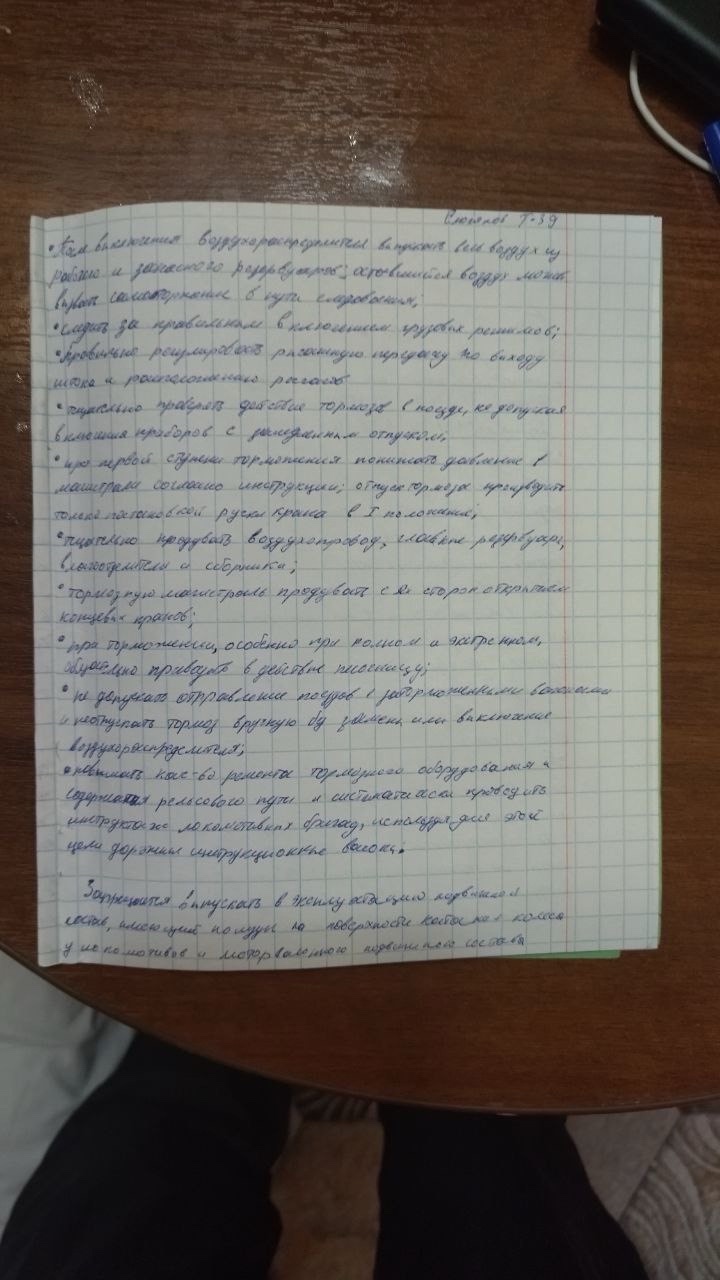 Т-39
• После выключения воздухораспределителя выпускать весь воздух из
рабочего и запасного резервуаров; оставшийся воздух может
вызвать самоторможение в пути следования;
• следить за правильным включением грузовых режимов;
• правильно регулировать рычажную передачу по выходу
штока и расположению рычагов
• тщательно проверять действие тормозов в поезде, не допуская
включения приборов с замедленным отпуском;
• при первой ступени торможения понижать давление в
магистрали согласно инструкции; отпуск тормоза производить
только постановкой ручки крана в I положение;
• тщательно продувать воздухопровод, главные резервуары,
влагоотделители и сборники;
• тормозную магистраль продувать с 2х сторон открытием
концевых кранов;
• при торможении, особенно при полном и экстренном,
обязательно приводить в действие песочницу;
• не допускать отправление поездов с заторможенными вагонами
и неотпускать тормоз вручную без замены или выключение
воздухораспределителя;
• повышать кач-во ремонта тормозного оборудования и
содержания рельсового пути и систематически проводить
инструктаж локомотивных бригад, используя для этой
цели дорожные инструкционные вагоны.
Запрещается выпускать в эксплуатацию подвижной
состав, имеющий ползуны на поверхности катания колеса
у локомотивов и моторвагонного подвижного состава